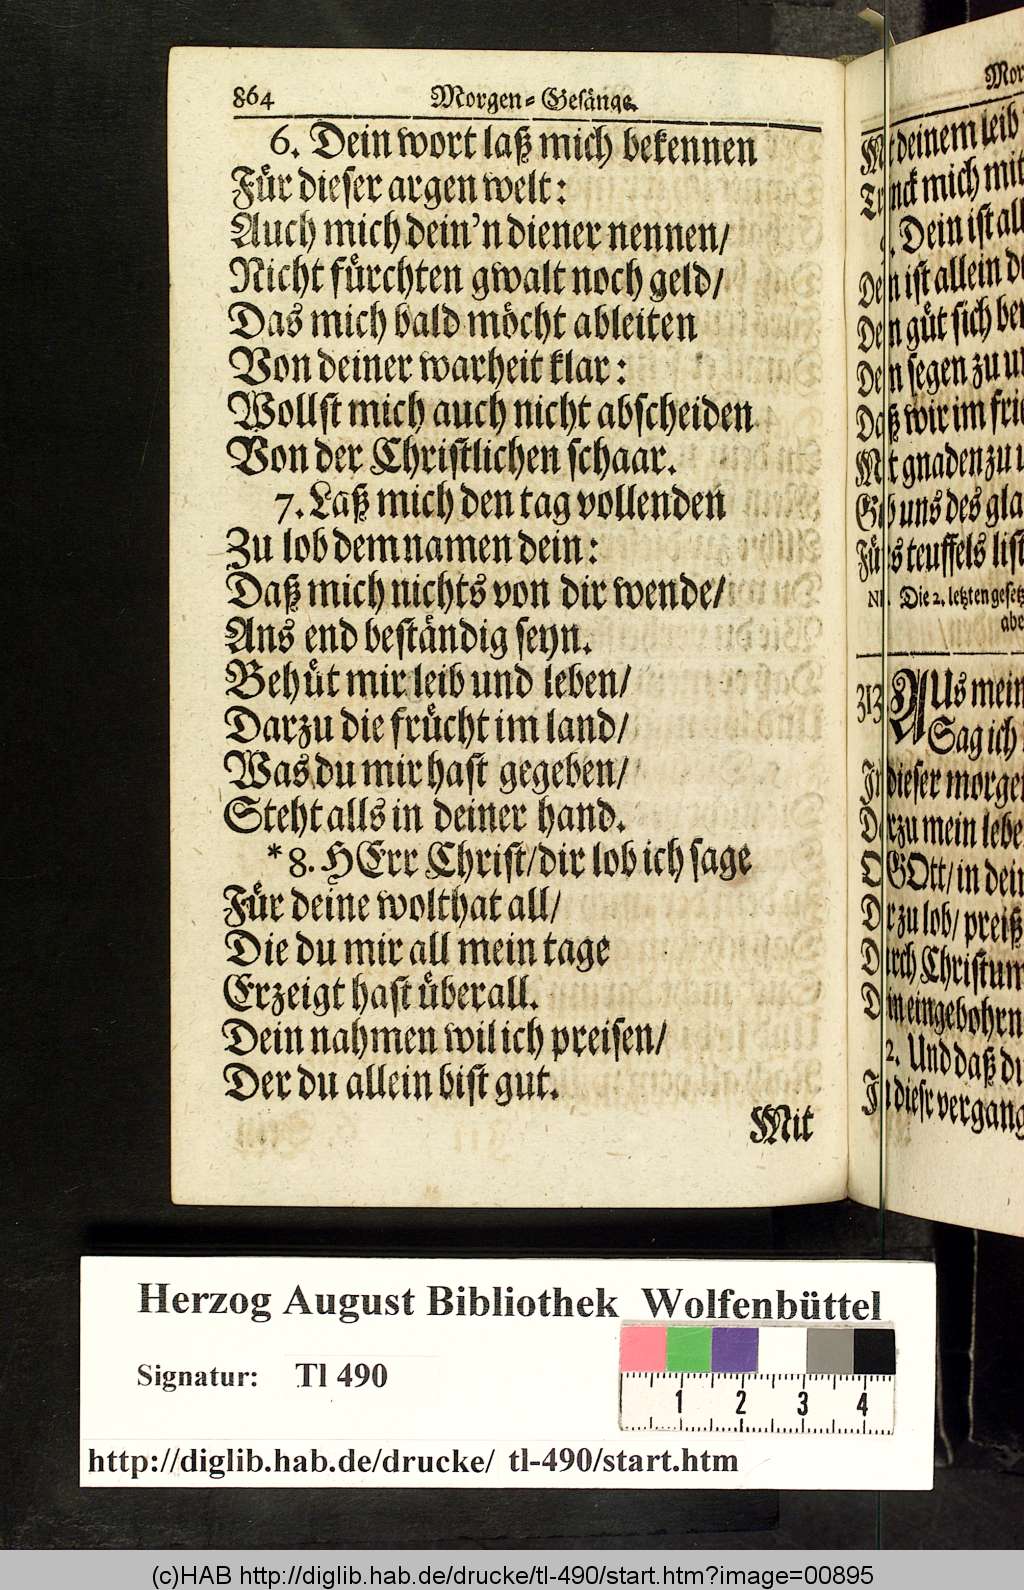 864 Morgen-Gesänge.
6. Dein wort laß mich bekennen
Für dieser argen welt:
Auch mich dein'n diener nennen/
Nicht fürchten gwalt noch geld/
Das mich bald möcht ableiten
Von deiner warheit klar:
Wollst mich auch nicht abscheiden
Von der Christlichen schaar.
7. Laß mich den tag vollenden
Zu lob dem namen dein:
Daß mich nichts von dir wende/
Ans end beständig seyn.
Behüt mir leib und leben/
Darzu die frücht im land/
Was du mir hast gegeben/
Steht alls in deiner hand.
*8. HErr Christ/dir lob ich sage
Für deine wolthat all/
Die du mir all mein tage
Erzeigt hast überall.
Dein nahmen wil ich preisen/
Der du allein bist gut.
Mit
deinem leib
mich mit
Dein ist all
ist allein
güt sich
segen zu
wir im
gnaden zu
uns des
teuffels list
Die 2. letzten
313 AUs mein
Sag ich
dieser
mein
GOtt/in
lob/preiß
Christum
2. Und daß
Herzog August Bibliothek Wolfenbüttel
Signatur: Tl 490
1 2 3 4
http://diglib.hab.de/drucke/ tl-490/start.htm
(c)HAB http://diglib.hab.de/drucke/tl-490/start.htm?image=00895